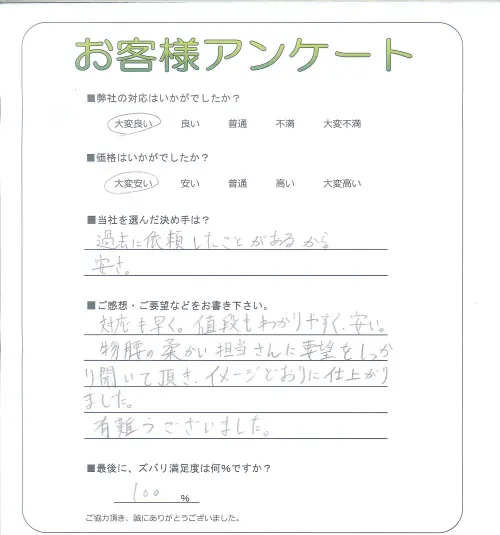 お客様アンケート
■弊社の対応はいかがでしたか?
大変良い 良い 普通 不満 大変不満
■価格はいかがでしたか?
大変安い 安い 普通 高い 大変高い
■当社を選んだ決め手は?
過去に依頼したことがあるから
安さ。
■ご感想・ご要望などをお書き下さい。
対応も早く。値段もわかりやすく、安い。
物腰の柔かい担当さんに要望をしっか
り聞いて頂き、イメージどおりに仕上がり
ました。
有難うございました。
■最後に、ズバリ満足度は何%ですか?
100 %
ご協力頂き、誠にありがとうございました。